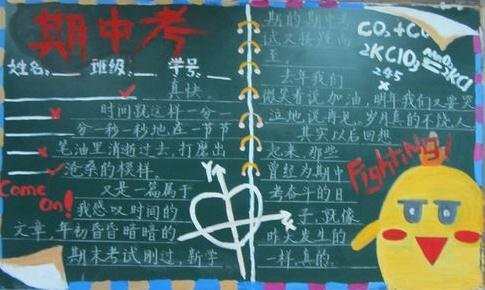 期中考
姓名:___ 班级:___ 学号___
真快
时间就这样一分一
分一秒一秒地,在一节节
笔油里消逝过去,打磨出
沧桑的模样。
又是一篇属于
我感叹时间的
文章,年初昏昏暗暗的
期末考试刚过,新学
Come
On!
期的期中考
试又接踵而
至。
去年我们
微笑着说加油,明年我们又要哭
泣地说再见,岁月真的不饶人
其实以后回想
起来,那些
曾经为期中
考奋斗的日
子,就像
昨天发生的
一样,真的。
2KClO₃
MnO₂
2KCl
245
Fighting!